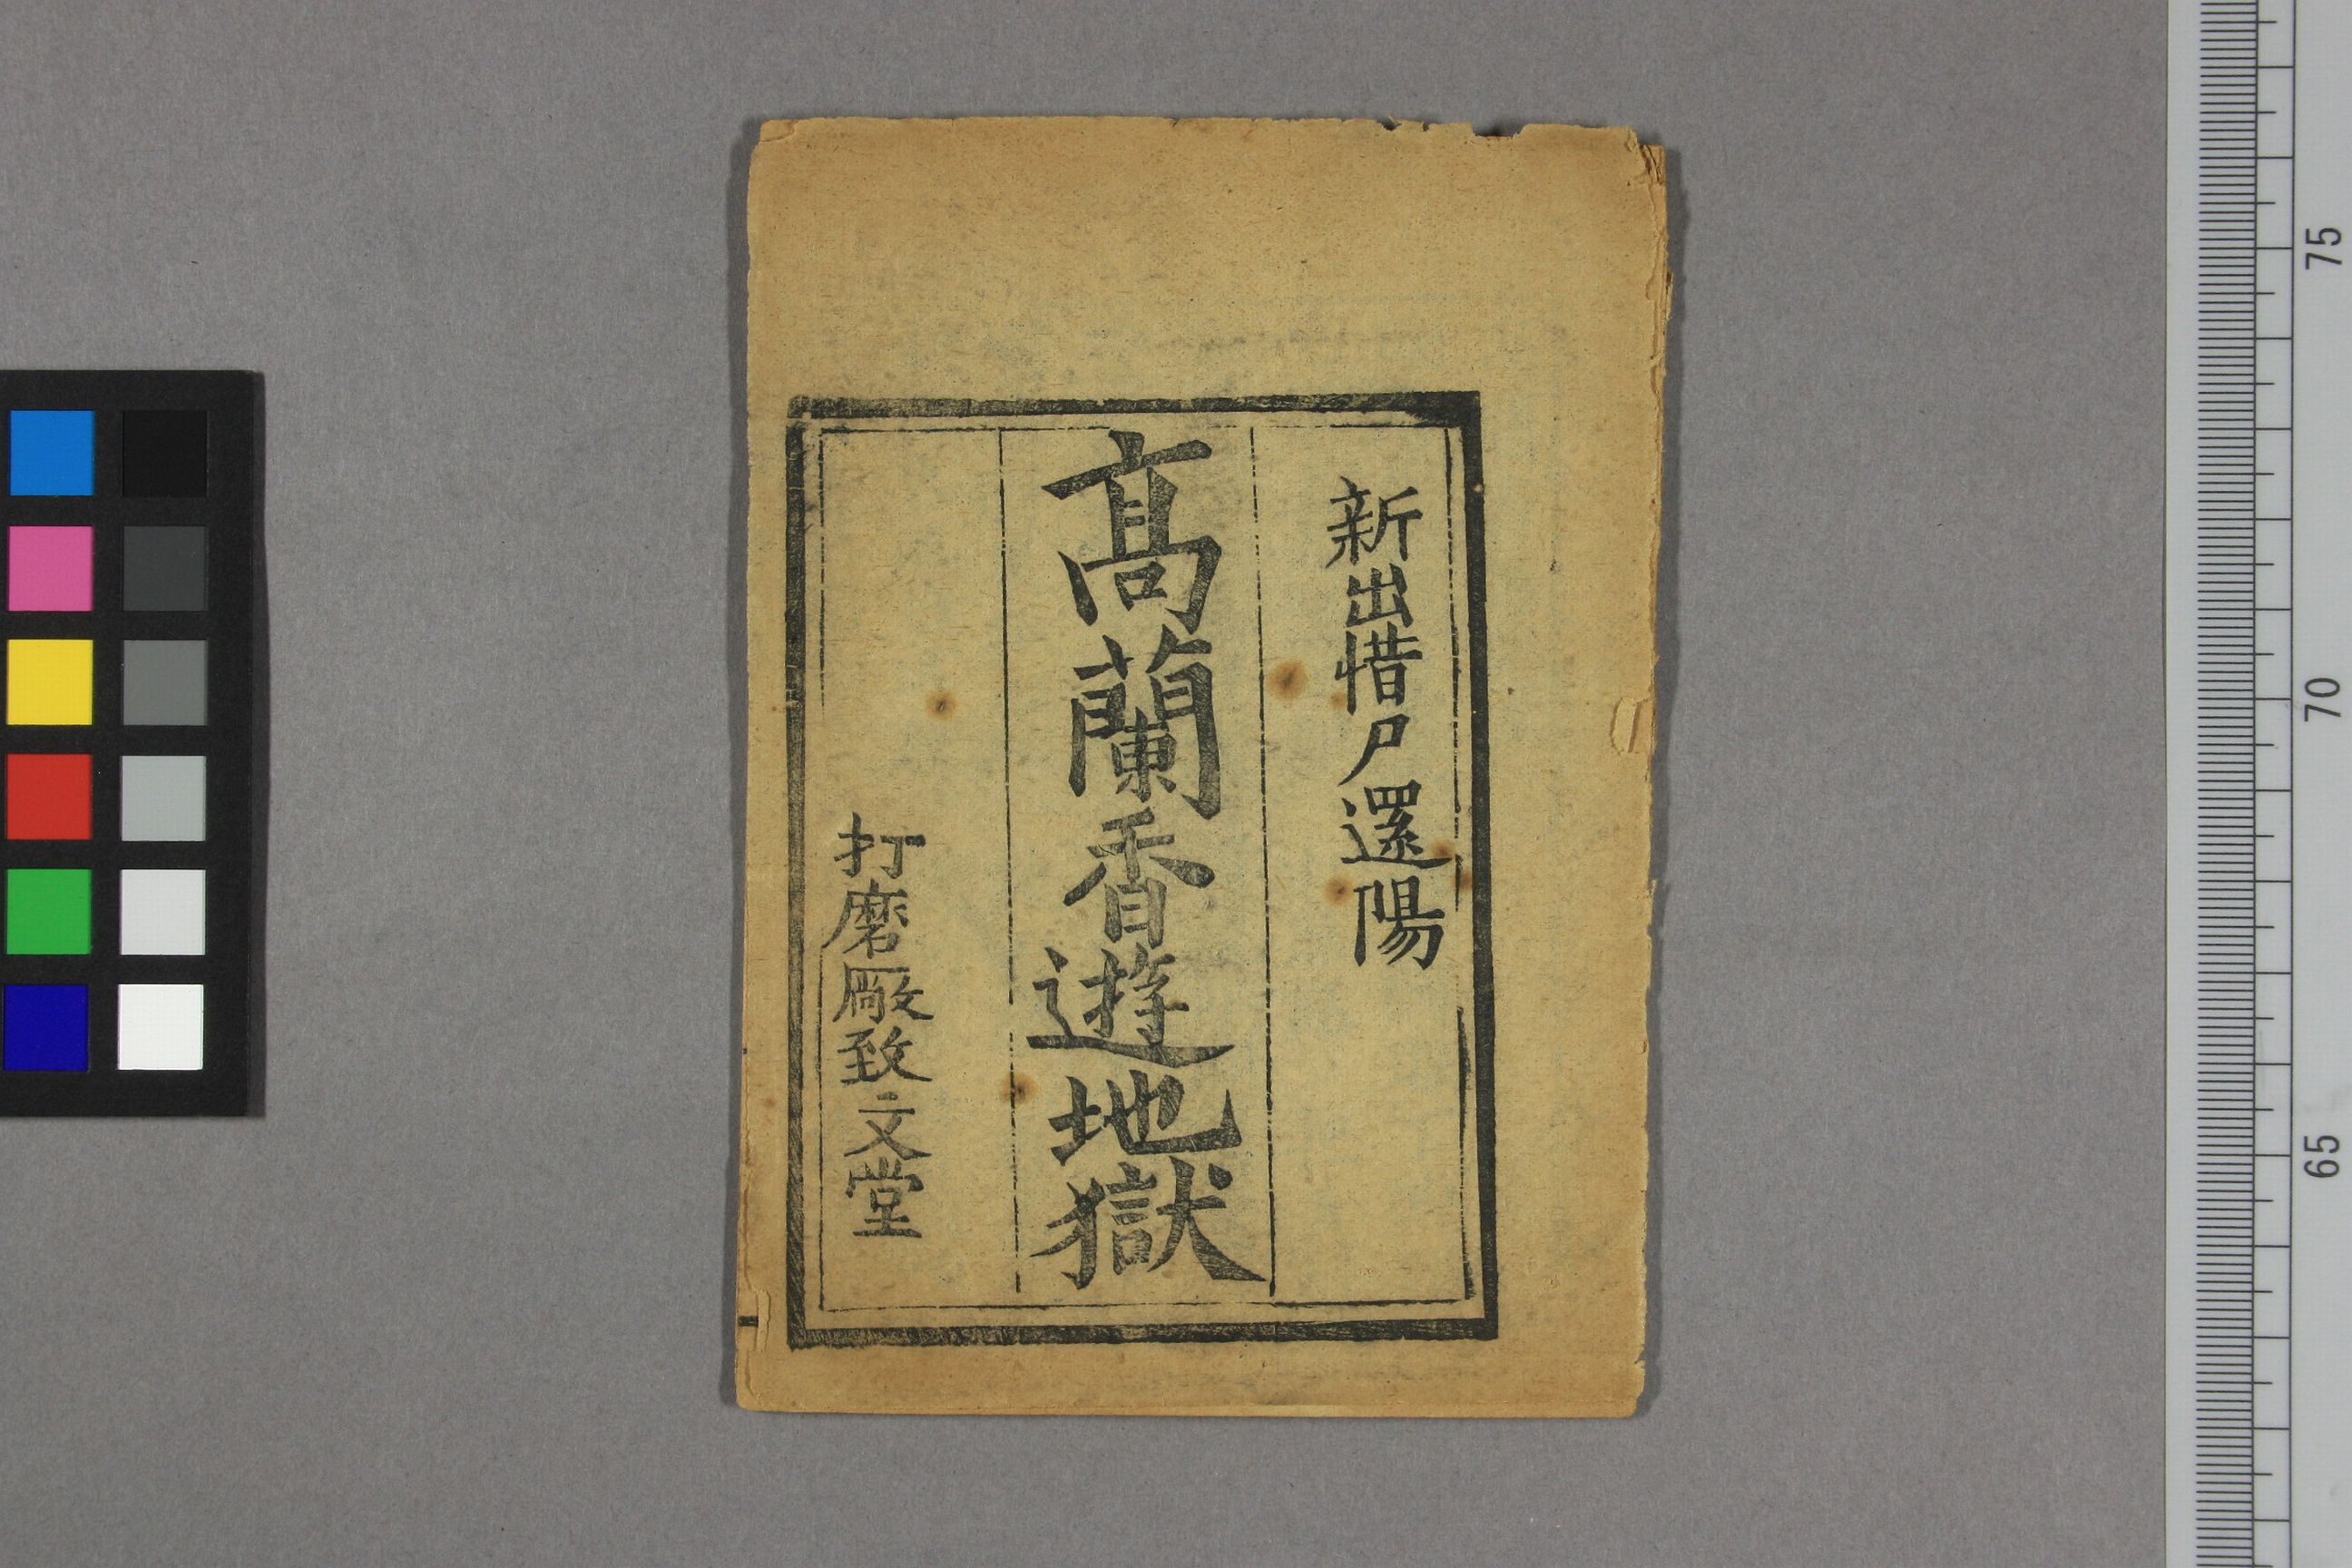 新出惜尸還陽
髙蘭香遊地獄
打磨廠致文堂
75
70
65